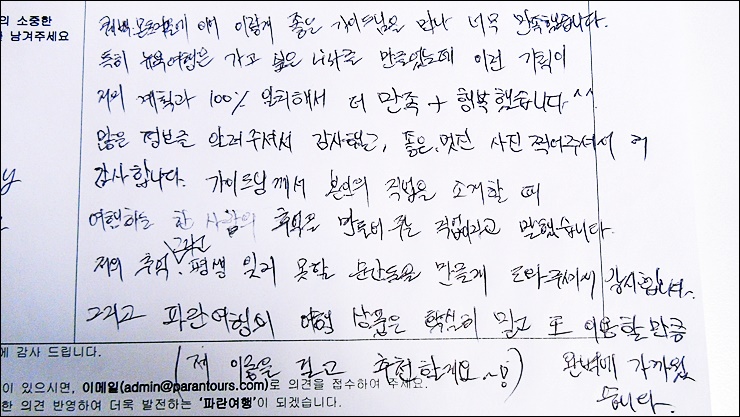 의 소중한
남겨주세요
퀘벡, 몬트리올에 이어 이렇게 좋은 가이드님을 만나 너무 만족했습니다.
특히 뉴욕여행은 가고 싶은 나라로 만족했는데 이런 기획이
저의 계획과 100% 일치해서 더 만족 + 행복했습니다^^
많은 정보를 알려주셔서 감사했고, 좋은, 멋진 사진 찍어주셔서 더
감사합니다. 가이드님께서 본인의 직업을 소개할 때
여행하는 한 사람의 추억을 만들어 주는 직업이라고 말했습니다.
그리고
저의 추억, 평생 잊지 못할 순간들을 만들게 도와주셔서 감사합니다.
그리고 파란여행의 여행 상품은 확실히 믿고 또 이용할만큼
에 감사 드립니다.
(제 이름을 걸고 추천할게요~!) 완벽에 가까웠
습니다.
이 있으시면, 이메일(admin@parantours.com)로 의견을 접수하여 주세요.
한 의견 반영하여 더욱 발전하는 '파란여행'이 되겠습니다.